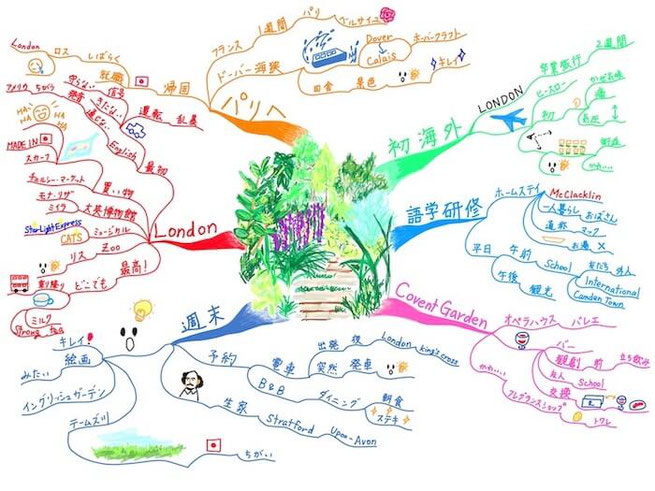 初海外
LONDON
卒業旅行
2週間
ヒースロー
初
語学研修
ホームステイ
McClacklin
一人暮らし おばさん
お湯 ×
平日
午前
School
友だち 外人
International
Camden Town
午後
観光
Covent Garden
オペラハウス
バレエ
バー
観劇 前
立ち飲み
友人
School
交換
かわいい
フレグランスショップ
トワレ
週末
予約
電車
出発 後
London
King's cross
突然 発車
B&B
ダイニング
朝食
ステキ
生家
Stratford
Upon-Avon
キレイ
絵画
みたい
イングリッシュガーデン
テームズ川
ちがい
London
最初
English
通じない
発音
アメリカ ちがう
運転 乱暴
信号
守らない
きたない
HA
HA
HA
HA
買い物
MADE IN
スカーフ
チェルシー・マーケット
大英博物館
モナ・リザ
ミイラ
ミュージカル
StarLight Express
CATS
Zoo
リス
最高!
どこでも
乗り降り
ミルク
Strong tea
パリへ
フランス
1週間
パリ
ベルサイユ
ドーバー海峡
Dover
Calais
ホーバークラフト
田舎
景色
キレイ
帰国
就職
しばらく
ロス
London